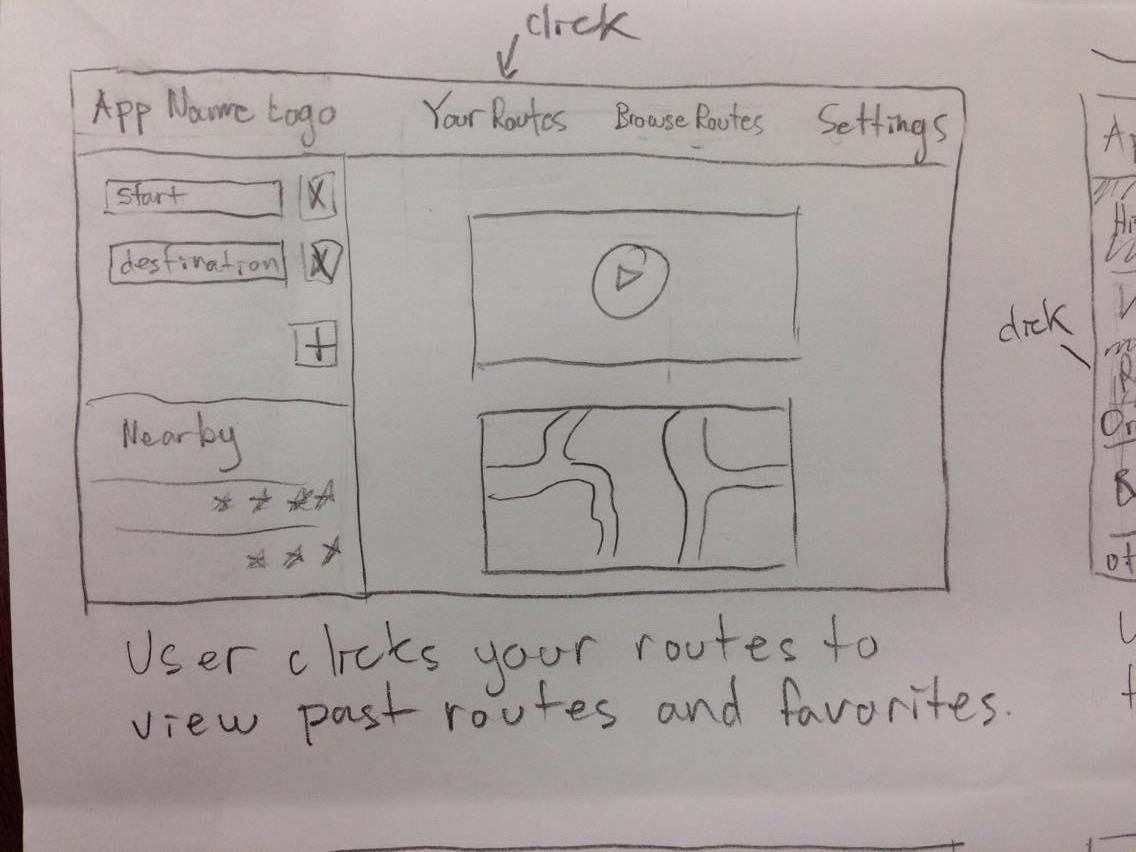 click
App Name Logo Your Routes Browse Routes Settings
start X
destination X
+
Nearby
User clicks your routes to
view past routes and favorites.
click